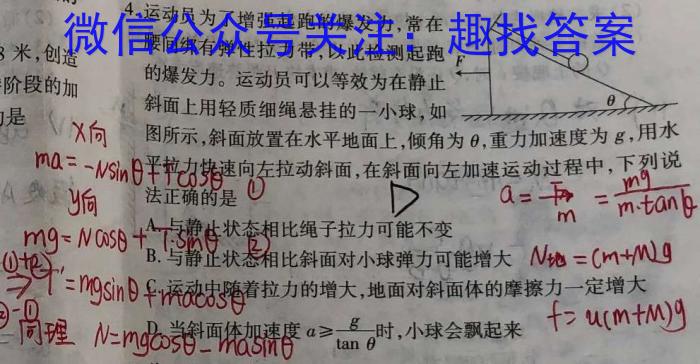 微信公众号关注：趣找答案
4.运动员为了增强起跑的爆发力,常在
腰间绑有弹性拉力带,以此检测起跑
的爆发力。运动员可以等效为在静止
斜面上用轻质细绳悬挂的一小球,如
图所示,斜面放置在水平地面上,倾角为θ,重力加速度为g,用水
平拉力快速向左拉动斜面,在斜面向左加速运动过程中,下列说
法正确的是
A.与静止状态相比绳子拉力可能不变
B.与静止状态相比斜面对小球弹力可能增大
C.运动中随着拉力的增大,地面对斜面体的摩擦力一定增大
D.当斜面体加速度a≥g/tan θ时,小球会飘起来
F
θ
8米,创造
阶段的加
是
X向
ma=-Nsinθ+Tcosθ ①
y向
mg=Ncosθ+T·sinθ ②
①+②
⇒T'=mgsinθ+macosθ
②-①
同理 N=mgcosθ-masinθ
D
a= F/m = mg/m·tanθ
N地=(m+M)g
f=u(m+M)g